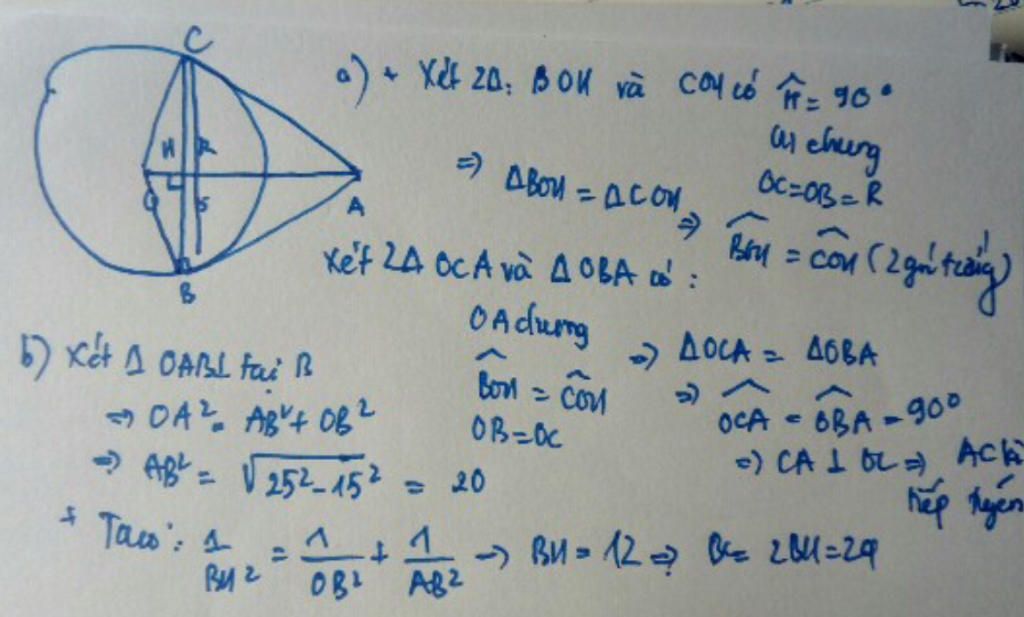 C
H
O
A
B
a) + Xét 2Δ: BOH và COH có Ĥ = 90°
OH chung
OC=OB=R
=> ΔBOH = ΔCOH
=> B̂OH = ĈOH (2 góc t/ứng)
Xét 2Δ OCA và ΔOBA có:
OA chung
B̂OH = ĈOH
OB=OC
=> ΔOCA = ΔOBA
=> ÔCA = ÔBA = 90°
=> CA ⊥ OC => AC là
tiếp tuyến
b) Xét Δ OAB⊥ tại B
=> OA² = AB² + OB²
=> AB² = √25²-15² = 20
+ Ta có: 1/BH² = 1/OB² + 1/AB² -> BH = 12 => BC = 2BH = 24